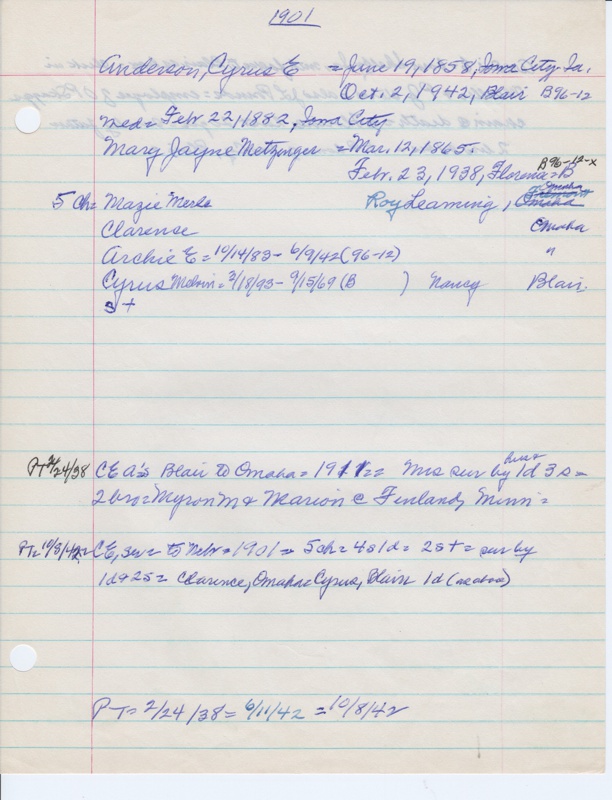 1901
Anderson, Cyrus E = June 19, 1858, Iowa City Ia.
Oct. 2, 1942, Blair B96-12
Med = Feb. 22, 1882, Iowa City
Mary Jayne Metzinger = Mar. 12, 1865.
B96-12-x
Feb. 23, 1938, Florence = B
5 ch = Mazie Merle Roy Leaming, Omaha
Clarense Omaha
Archie E = 10/14/83 - 6/9/42 (96-12) "
Cyrus Melvin = 3/18/93 - 9/15/69 (B ) Nancy Blair.
st
PT 2/24/38 CEA's Blair to Omaha = 1911 = Mrs sur by husb 1d 3s =
2 bro = Myron M & Marion C Finland, Minn =
PT = 10/8/42 = CE, = to Nebr = 1901 = 5 ch = 4s 1d = 2 st = sur by
1d & 2s = Clarence, Omaha & Cyrus, Blair 1d (as above)
PT = 2/24/38 = 6/11/42 = 10/8/42